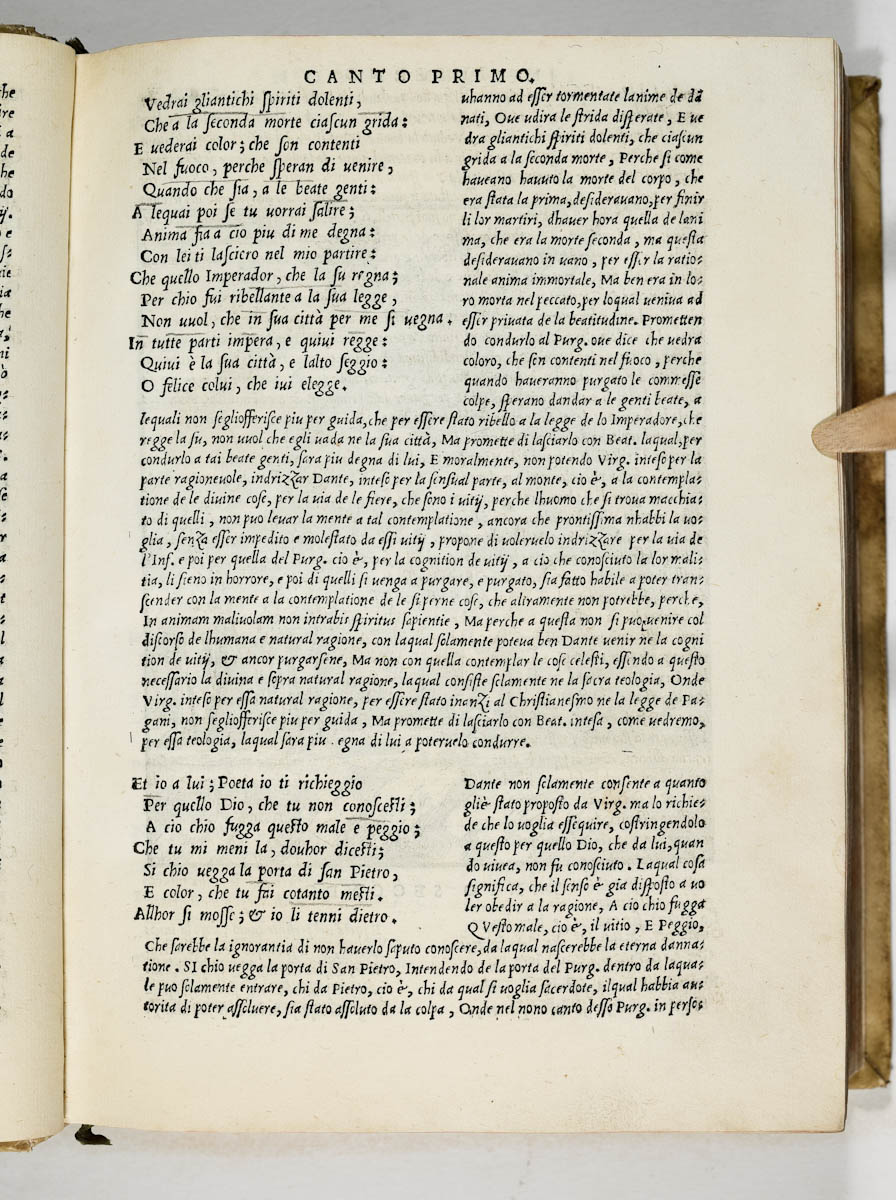 CANTO PRIMO.
Vedrai gliantichi spiriti dolenti,
Che a la seconda morte ciascun grida:
E uederai color; che son contenti
Nel fuoco, perche speran di uenire,
Quando che sia, a le beate genti:
A lequai poi se tu uorrai salire;
Anima fia a cio piu di me degna:
Con lei ti lasciero nel mio partire:
Che quello Imperador, che la su regna;
Per chio fui ribellante a la sua legge,
Non uuol, che in sua città per me si uegna.
In tutte parti impera, e quiui regge:
Quiui è la sua città, e lalto seggio:
O felice colui, che iui elegge.
uhanno ad esser tormentate lanime de dā
nati, Oue udira le strida disperate, E ue
dra gliantichi spiriti dolenti, che ciascun
grida a la seconda morte, Perche si come
haueano hauuto la morte del corpo, che
era stata la prima, desiderauano, per finir
li lor martiri, dhauer hora quella de lani
ma, che era la morte seconda, ma questa
desiderauano in uano, per esser la ratio-
nale anima immortale, Ma ben era in lo-
ro morta nel peccato, per loqual ueniua ad
esser priuata de la beatitudine. Prometten
do condurlo al Purg. oue dice che uedra
coloro, che son contenti nel fuoco, perche
quando haueranno purgato le commesse
colpe, sperano dandar a le genti beate, a
lequali non segliofferisce piu per guida, che per essere stato ribello a la legge de lo Imperadore, che
regge la su, non uuol che egli uada ne la sua città, Ma promette di lasciarlo con Beat. laqual, per
condurlo a tai beate genti, sara piu degna di lui, E moralmente, non potendo Virg. inteso per la
parte ragioneuole, indrizzar Dante, inteso per la sensual parte, al monte, cio è, a la contempla-
tione de le diuine cose, per la uia de le fiere, che sono i uitij, perche lhuomo che si troua macchia-
to di quelli, non puo leuar la mente a tal contemplatione, ancora che prontissima nhabbi la uo-
glia, senza esser impedito e molestato da essi uitij, propone di uoleruelo indrizzare per la uia de
l'Inf. e poi per quella del Purg. cio è, per la cognition de uitij, a cio che conosciuto la lor mali-
tia, li sieno in horrore, e poi di quelli si uenga a purgare, e purgato, sia fatto habile a poter tran-
scender con la mente a la contemplatione de le superne cose, che altramente non potrebbe, perche,
In animam maliuolam non intrabit spiritus sapientie, Ma perche a questa non si puo uenire col
discorso de lhumana e natural ragione, con laqual solamente poteua ben Dante uenir ne la cogni
tion de uitij, & ancor purgarsene, Ma non con quella contemplar le cose celesti, essendo a questo
necessario la diuina e sopra natural ragione, laqual consiste solamente ne la sacra teologia, Onde
Virg. inteso per essa natural ragione, per essere stato inanzi al Christianesmo ne la legge de Pa-
gani, non segliofferisce piu per guida, Ma promette di lasciarlo con Beat. intesa, come uedremo,
per essa teologia, laqual sara piu egna di lui a poteruelo condurre.
Et io a lui; Poeta io ti richieggio
Per quello Dio, che tu non conoscesti;
A cio chio fugga questo male e peggio;
Che tu mi meni la, douhor dicesti;
Si chio uegga la porta di san Pietro,
E color, che tu fai cotanto mesti.
Allhor si mosse; & io li tenni dietro.
Dante non solamente consente a quanto
gliè stato proposto da Virg. ma lo richie-
de che lo uoglia essequire, costringendolo
a questo per quello Dio, che da lui, quan
do uiuea, non fu conosciuto. Laqual cosa
significa, che il senso è gia disposto a uo
ler obedir a la ragione, A cio chio fugga
QVesto male, cio è, il uitio, E Peggio,
Che sarebbe la ignorantia di non hauerlo saputo conoscere, da laqual nascerebbe la eterna danna-
tione. SI chio uegga la porta di San Pietro, Intendendo de la porta del Purg. dentro da laqua-
le puo solamente entrare, chi da Pietro, cio è, chi da qual si uoglia sacerdote, ilqual habbia au-
torita di poter assoluere, sia stato assoluto da la colpa, Onde nel nono canto desso Purg. in perso-